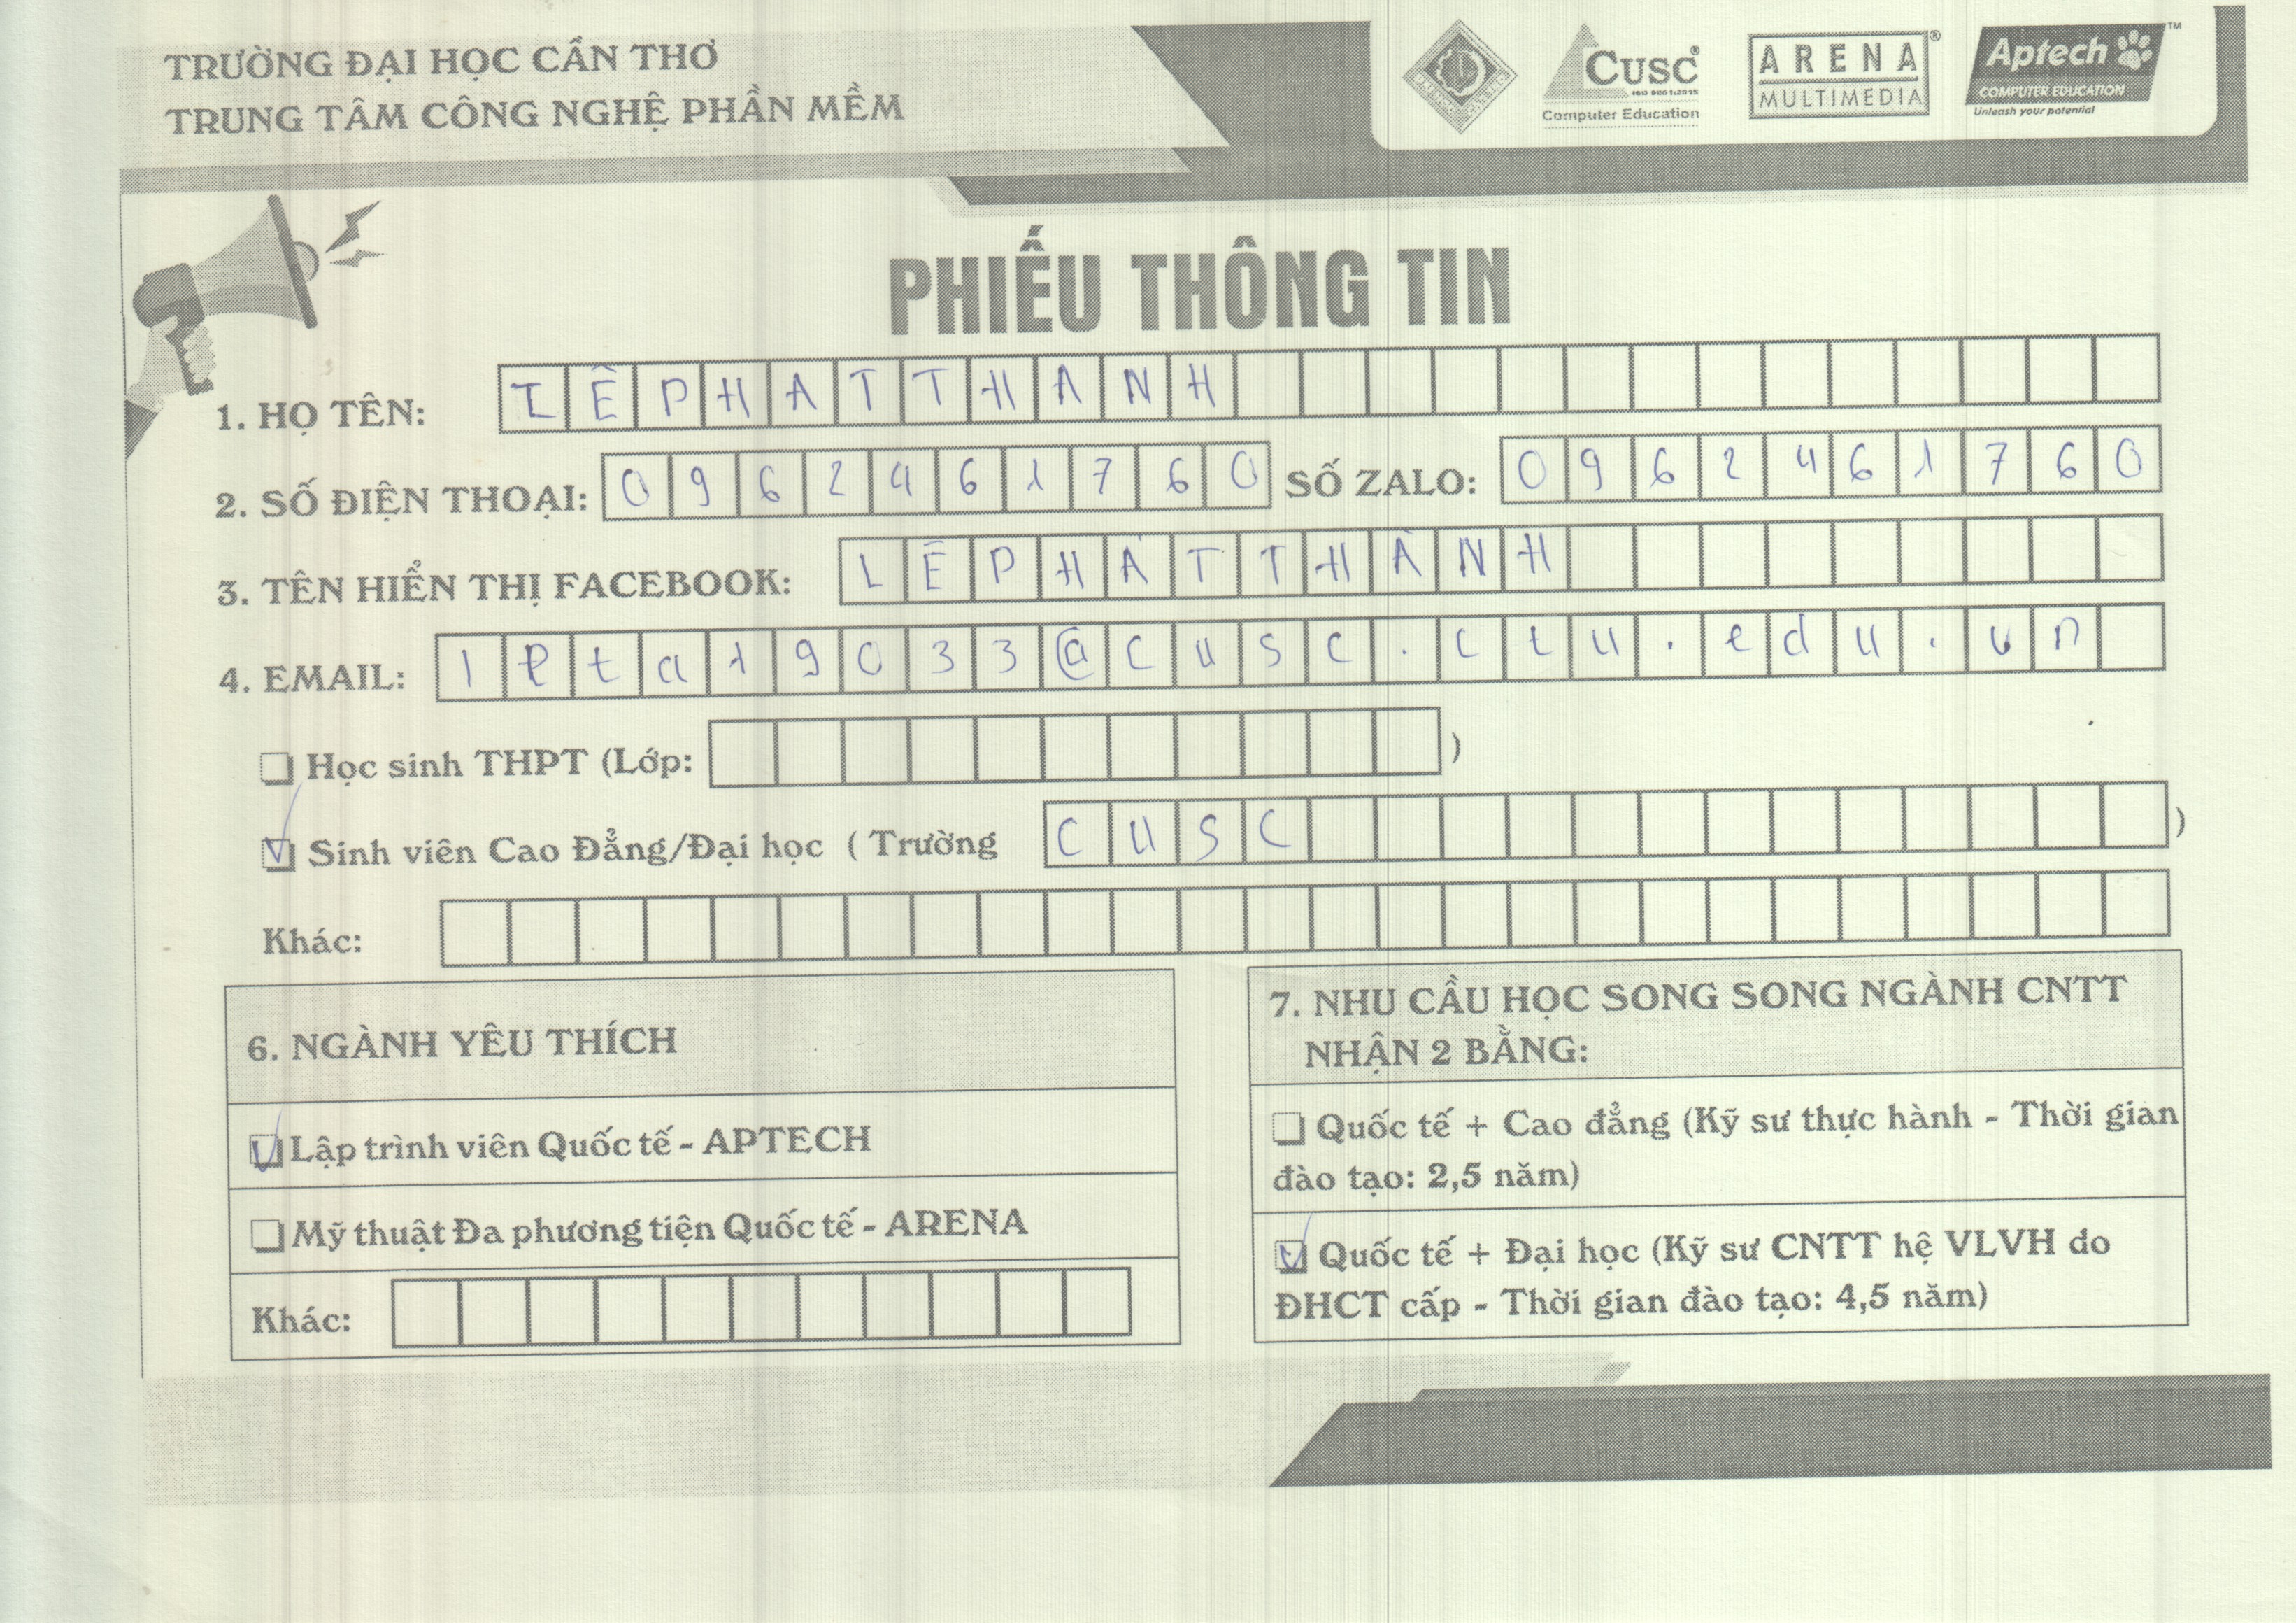 TRƯỜNG ĐẠI HỌC CẦN THƠ
TRUNG TÂM CÔNG NGHỆ PHẦN MỀM
CUSC®
ISO 9001:2015
Computer Education
ARENA®
MULTIMEDIA
Aptech™
COMPUTER EDUCATION
Unleash your potential
PHIẾU THÔNG TIN
1. HỌ TÊN: LÊPHATTHANH
2. SỐ ĐIỆN THOẠI: 0962461760 SỐ ZALO: 0962461760
3. TÊN HIỂN THỊ FACEBOOK: LÊPHÁTTHÀNH
4. EMAIL: lpta19033@cusc.ctu.edu.vn
Học sinh THPT (Lớp: )
Sinh viên Cao Đẳng/Đại học ( Trường CUSC )
Khác:
6. NGÀNH YÊU THÍCH
Lập trình viên Quốc tế - APTECH
Mỹ thuật Đa phương tiện Quốc tế - ARENA
Khác:
7. NHU CẦU HỌC SONG SONG NGÀNH CNTT
NHẬN 2 BẰNG:
Quốc tế + Cao đẳng (Kỹ sư thực hành - Thời gian
đào tạo: 2,5 năm)
Quốc tế + Đại học (Kỹ sư CNTT hệ VLVH do
ĐHCT cấp - Thời gian đào tạo: 4,5 năm)